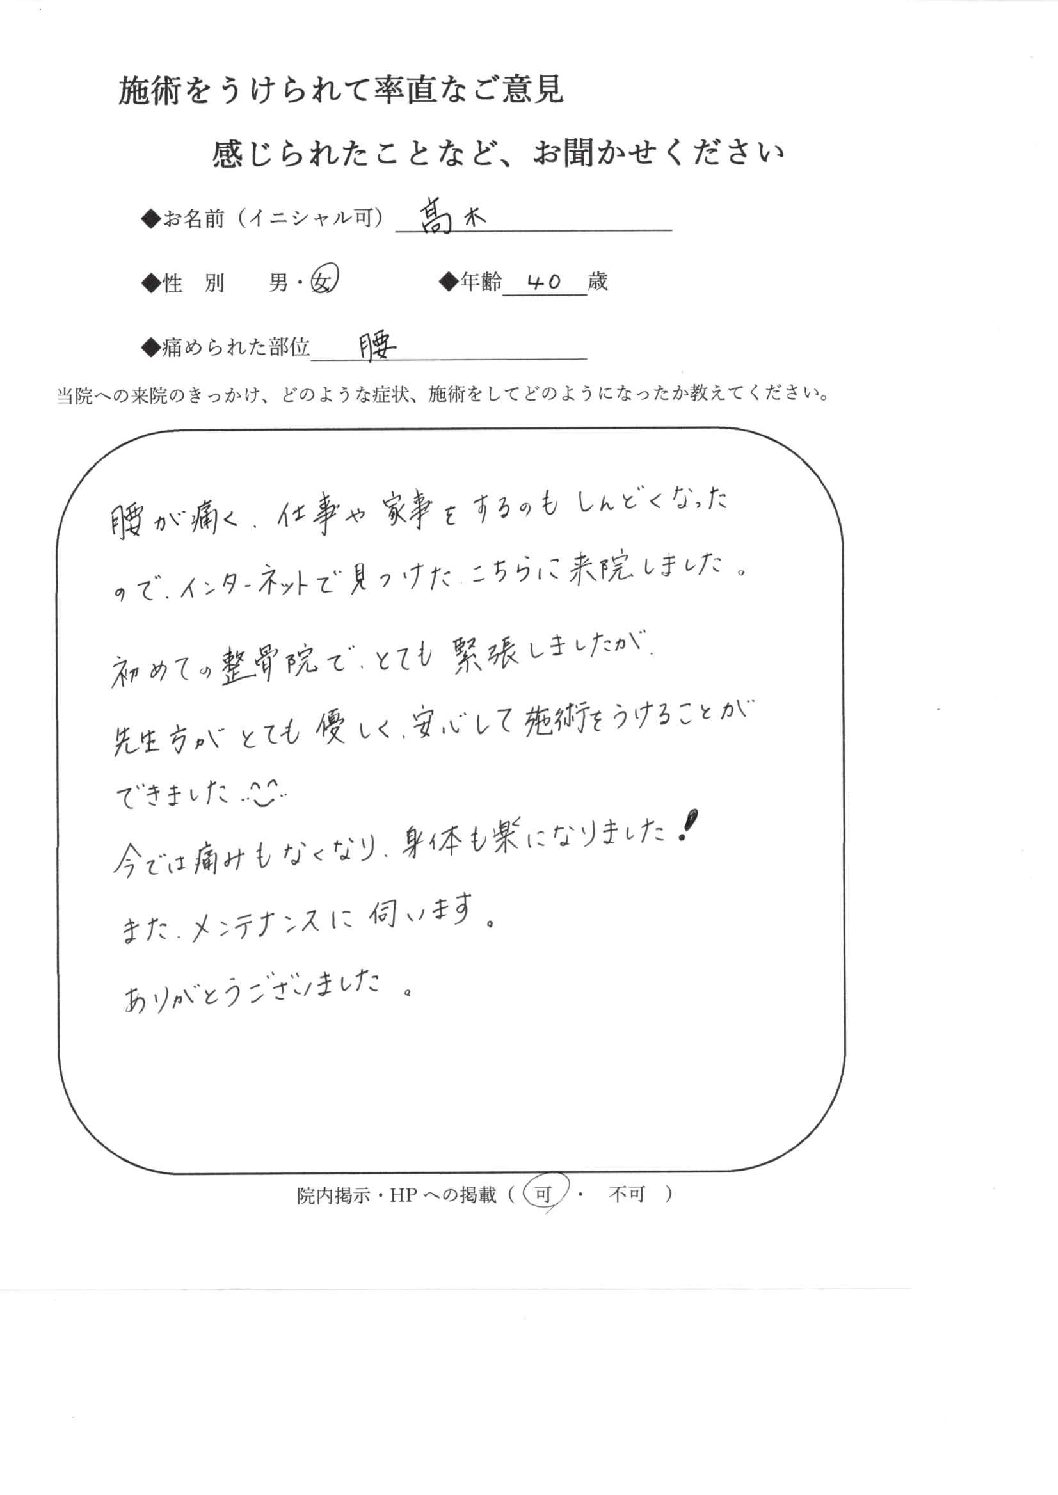 施術をうけられて率直なご意見
感じられたことなど、お聞かせください
◆お名前（イニシャル可） 髙木
◆性 別 男・女 ◆年齢 40 歳
◆痛められた部位 腰
当院への来院のきっかけ、どのような症状、施術をしてどのようになったか教えてください。
腰が痛く、仕事や家事をするのもしんどくなった
ので、インターネットで見つけた、こちらに来院しました。
初めての整骨院で、とても緊張しましたが、
先生方がとても優しく、安心して施術をうけることが
できました
今では痛みもなくなり、身体も楽になりました！
また、メンテナンスに伺います。
ありがとうございました。
院内掲示・HPへの掲載（ 可 ・ 不可 ）